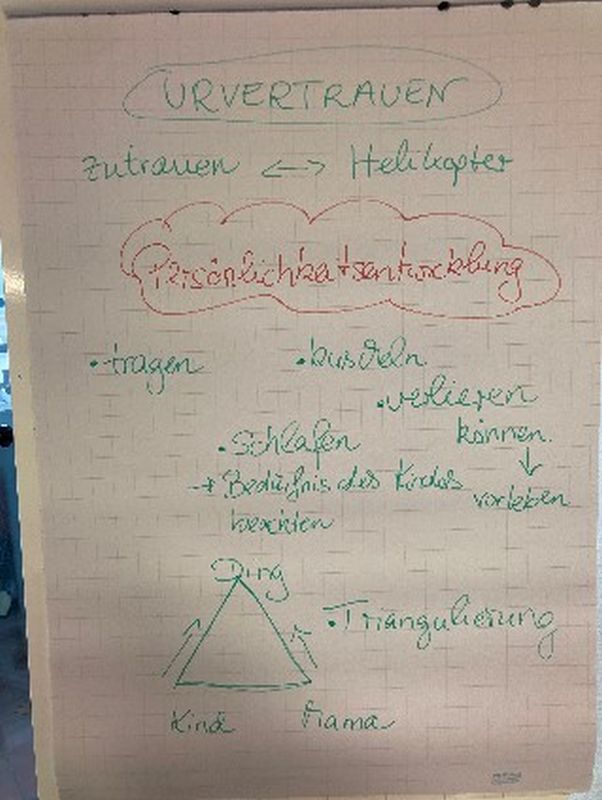 URVERTRAUEN
Zutrauen <-> Helikopter
Persönlichkeitsentwicklung
• tragen
• kuscheln
• verlieren
können
↓
vorleben
• Schlafen
→ Bedürfnis des Kindes
beachten
Ding
• Triangulierung
Kind
Mama